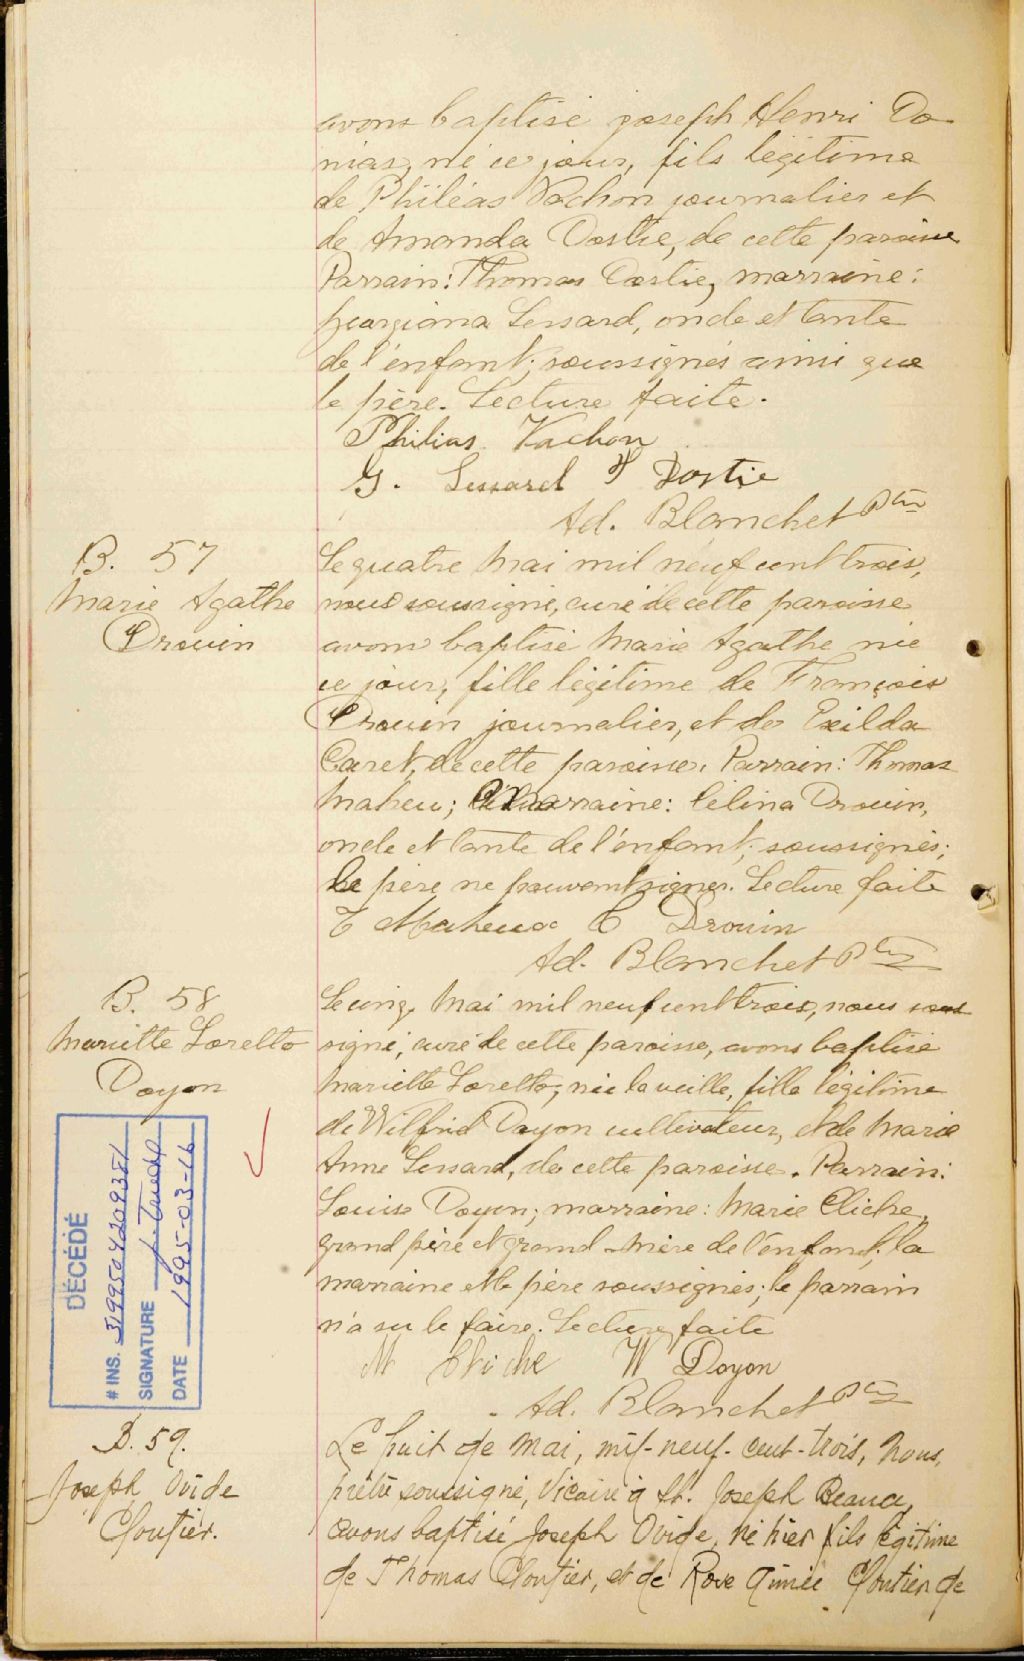 avons baptisé joseph Henri Do-
nias, né ce jour, fils légitime
de Philéas Vachon journalier et
de Amanda Dostie, de cette paroisse
Parrain: Thomas Dostie, marraine:
georgiana Lessard, oncle et tante
de l'enfant; soussignés ainsi que
le père. Lecture faite.
Philias Vachon
G. Lessard T Dostie
Ad. Blanchet Ptre
B. 57
Marie Agathe
Drouin
Le quatre Mai mil neuf cent trois,
nous soussigné, curé de cette paroisse
avons baptisé Marie Agathe née
ce jour, fille légitime de François
Drouin journalier, et de Exilda
Caret, de cette paroisse. Parrain: Thomas
Maheu; marraine: Célina Drouin,
oncle et tante de l'enfant; soussignés;
le père ne pouvant signer. Lecture faite
T Maheux C Drouin
Ad. Blanchet Ptre
B. 58
Mariette Loretto
Doyon
Le cinq Mai mil neuf cent trois, nous sous
signé, curé de cette paroisse, avons baptisé
Mariette Loretto, née la veille, fille légitime
de Wilfrid Doyon cultivateur, et de Marie
Anne Lessard, de cette paroisse. Parrain:
Louis Doyon; marraine: Marie Cliche,
grand père et grand mère de l'enfant; la
marraine et le père soussignés; le parrain
n'a su le faire. Lecture faite
M Cliche W Doyon
Ad. Blanchet Ptre
DÉCÉDÉ
# INS. 319950420935
SIGNATURE
DATE 1995-03-16
B. 59.
Joseph Ovide
Cloutier.
Le huit de Mai, mil-neuf-cent-trois, Nous,
prêtre soussigné, Vicaire à St. Joseph Beauce,
avons baptisé Joseph Ovide, né hier fils légitime
de Thomas Cloutier, et de Rose Aimée Cloutier de